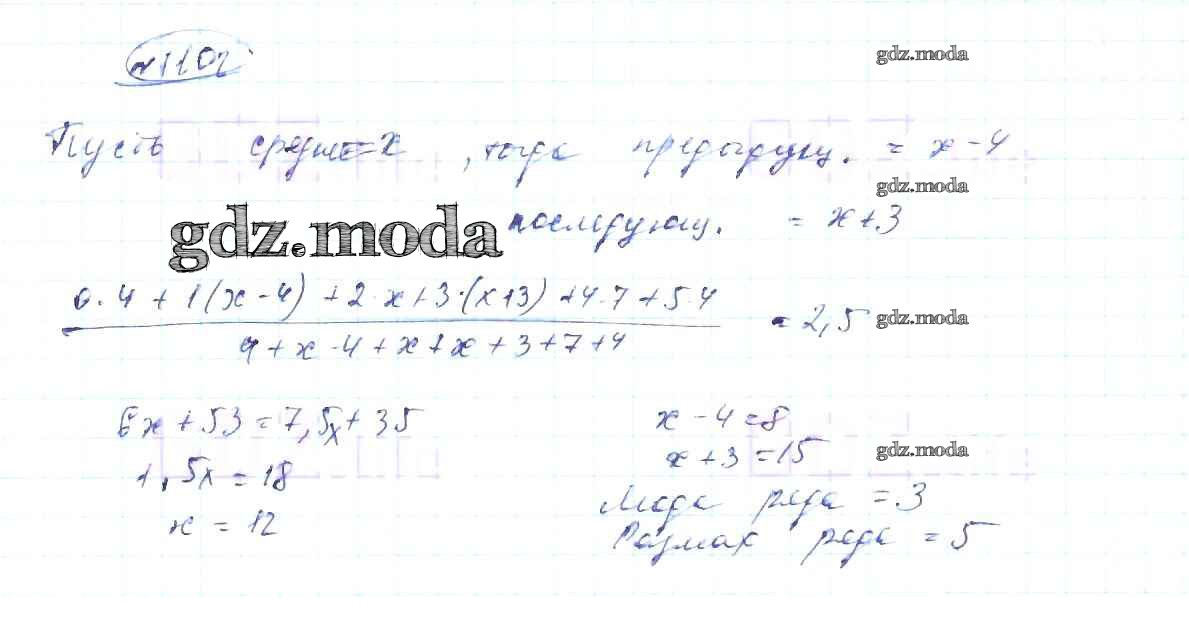 №1102
gdz.moda
Пусть средне=x, тогда предыдущ. = x-4
gdz.moda
gdz.moda последующ. = x+3
0·4 + 1(x-4) +2·x+3·(x+3) +4·7+5·4
gdz.moda
= 2,5
4+x-4+x+x+3+7+4
6x+53=7,5x+35
x-4=8
x+3=15
gdz.moda
1,5x=18
x = 12
Мода ряда = 3
Размах ряда = 5